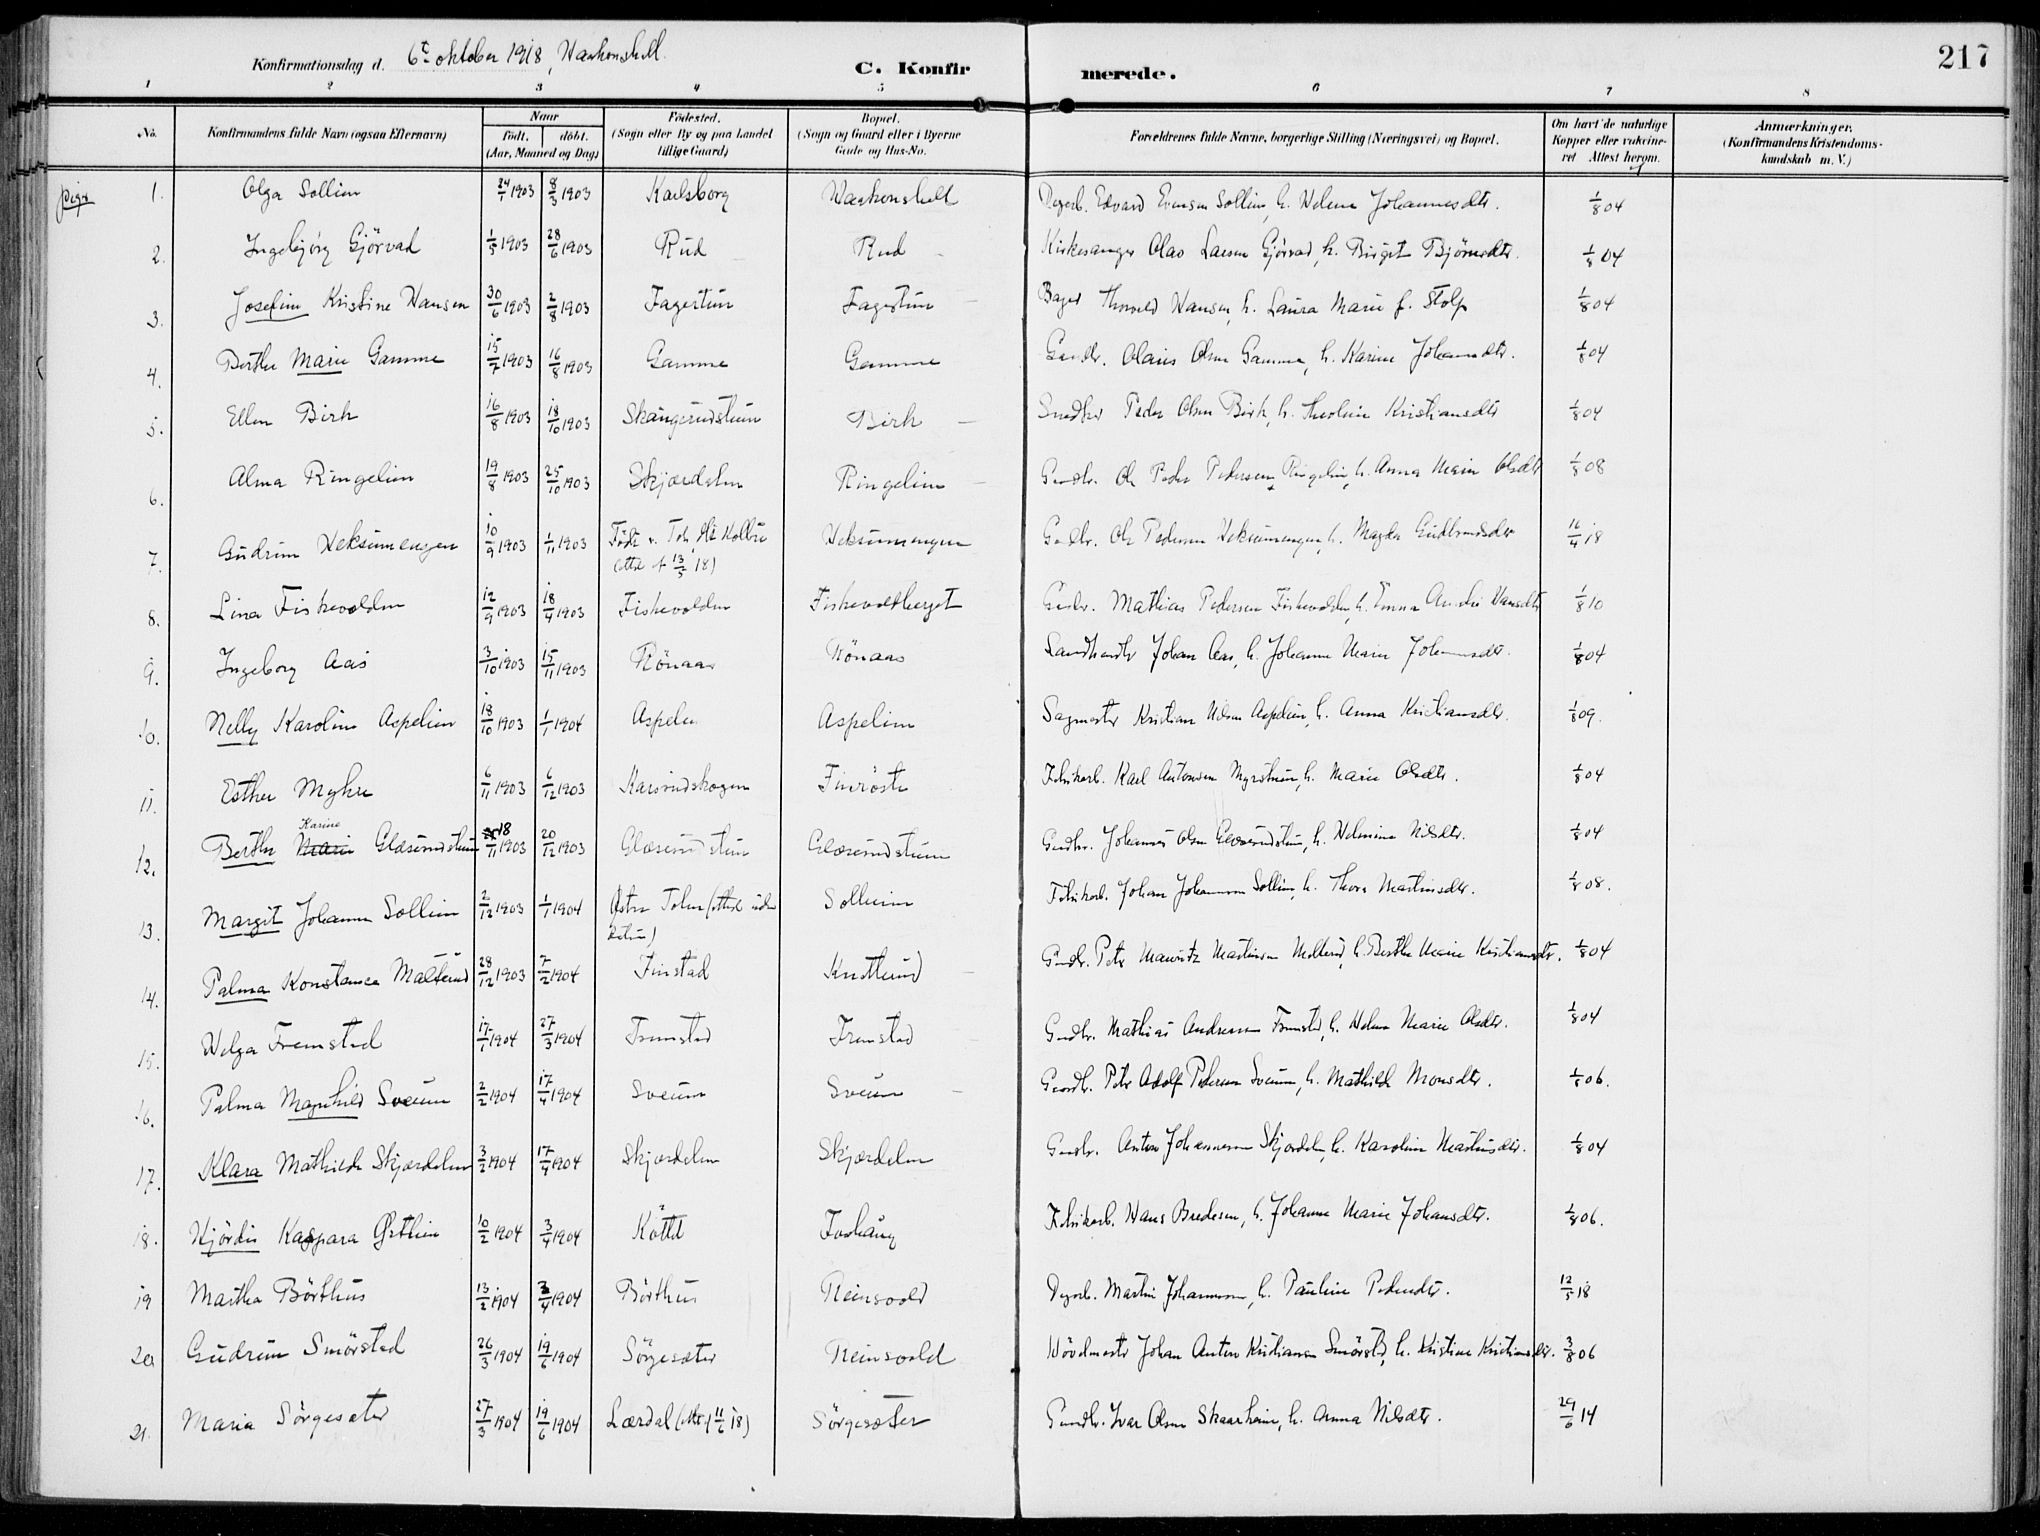 217
Konfirmationsdag d. 6te oktober 1918, Haakenshell
C. Konfirmerede.
1 2 3 4 5 6 7 8
No. Konfirmandens fulde Navn (ogsaa Efternavn) Naar født. døbt. (Aar, Maaned og Dag) Fødested. (Sogn eller By og paa Landet tillige Gaard) Bopæl. (Sogn og Gaard eller i Byerne Gade og Hus-No. Forældrenes fulde Navne, borgerlige Stilling (Næringsvei) og Bopæl. Om havt de naturlige Kopper eller vaksineret Attest herom. Anmærkninger. (Konfirmandens Kristendomskundskab m. V.)
Piger
1. Olga Sollien 24/1 1903 8/3 1903 Karlsborg Haakenshell Dagarb. Edvard Evensen Sollien, h. Helene Johannesdtr. 1/8 04
2. Ingebjörg Gjörvad 1/5 1903 28/6 1903 Rud Rud Kirkesanger Olas Larsen Gjörvad, h. Birgit Björnsdtr. 1/8 04
3. Josefine Kristine Hansen 30/6 1903 2/8 1903 Fagertun Fagertun Bager Thorvald Hansen, h. Laura Marie f. Stolp 1/8 04
4. Berthe Marie Gamme 15/7 1903 16/8 1903 Gamme Gamme Gaardbr. Olaus Olsen Gamme, h. Karine Johannesdtr. 1/8 04
5. Ellen Birk 16/8 1903 18/10 1903 Skangerudstuen Birk Snedker Peder Olsen Birk, h. Kristiansdtr 1/8 04
6. Alma Ringelien 19/8 1903 25/10 1903 Skjærdalen Ringelien Gaardbr. Ole Peder Pedersen Ringelien, h. Anna Marie Olsdtr 1/8 08
7. Gudrun Heksumengen 10/9 1903 1/11 1903 Heksumengen Gaardbr. Ole Pedersen Heksumengen, h. Magda Gudbrandsdtr 16/4 18
(att. af 13/5 18)
8. Lina Fiskevolden 12/9 1903 18/4 1903 Fiskevolden Fiskevoldberget Gaardbr. Mathias Pedersen Fiskevolden, h. Emma Hansdtr 1/8 10
9. Ingeborg Aas 3/10 1903 15/11 1903 Rönaas Rönaas Landhandler Johan Aas, h. Johanne Marie Johannesdtr. 1/8 04
10. Nelly Karoline Aspelien 18/10 1903 1/1 1904 Aspelien Aspelien Sagmester Kristian Nilsen Aspelien, h. Anna Kristiansdtr. 1/8 09.
11. Esther Myhre 6/11 1903 6/12 1903 Karsrudskogen Finröste Fabrikarb. Karl Antonsen Myrstuen, h. Marie Olsdtr. 1/8 04
12. Berthe Karine Glæserudstuen 18/11 1903 20/12 1903 Glæserudstuen Glæserudstuen Gaardbr. Johannes Olsen Glæserudstuen, h. Helmine Nilsdtr. 1/8 04
13. Margit Johanne Sollien 2/12 1903 1/1 1904 Östre Toten Solheim Fabrikarb. Johan Johannesen Sollien, h. Thora Martinsdtr. 1/8 08.
14. Palma Konstance Mælterud 28/12 1903 7/2 1904 Finstad Knutlund Gaardbr. Peter Mauritz Martinsen Melterud, h. Berthe Marie Kristiansdtr. 1/8 04
15. Helga Fremstad 17/1 1904 27/3 1904 Fremstad Fremstad Gaardbr. Mathias Andersen Fremstad, h. Helene Marie Olsdtr. 1/8 04
16. Palma Magnhild Sveum 2/2 1904 17/4 1904 Sveum Sveum Gaardbr. Peter Adolf Pedersen Sveum, h. Mathilde Monsdtr. 1/8 06.
17. Klara Mathilde Skjærdalen 3/2 1904 17/4 1904 Skjærdalen Skjærdalen Gaardbr. Anton Johannesen Skjærdalen, h. Karoline Mathisdtr. 1/8 04
18. Hjördis Kaspara Østlien 10/2 1904 3/4 1904 Forhaug Fabrikarb. Hans Bredesen, h. Johanne Marie Johansdtr. 1/8 06.
19 Martha Börthus 13/2 1904 3/4 1904 Börthus Reinsvold Dagarb. Martin Johannesen, h. Pauline Pedersdtr. 12/5 18
20 Gudrun Smörstad 26/3 1904 19/6 1904 Sörgesæter Reinsvold Hövelmester Johan Anton Kristiansen Smörstad, h. Kristine Kristiansdtr. 3/8 06
21. Maria Sörgesæter 27/3 1904 19/6 1904 Lærdal (att. af 11/6 18) Sörgesæter Gaardbr. Ivar Olsen Skaarheim, h. Anna Nilsdtr. 29/6 14